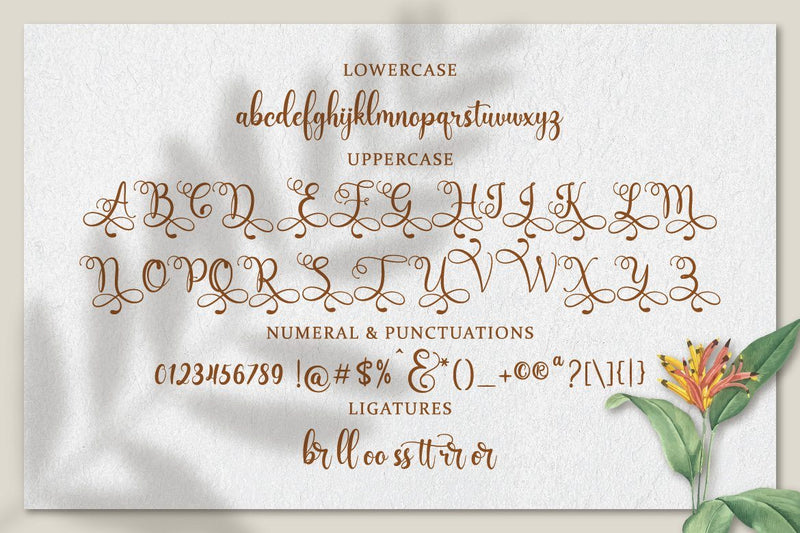 LOWERCASE
abcdefghijklmnopqrstuvwxyz
UPPERCASE
A B C D E F G H I J K L M
N O P Q R S T U V W X Y Z
NUMERAL & PUNCTUATIONS
0123456789 !@#$%^&*()_+©®ª?[\]{|}
LIGATURES
br ll oo ss tt rr or